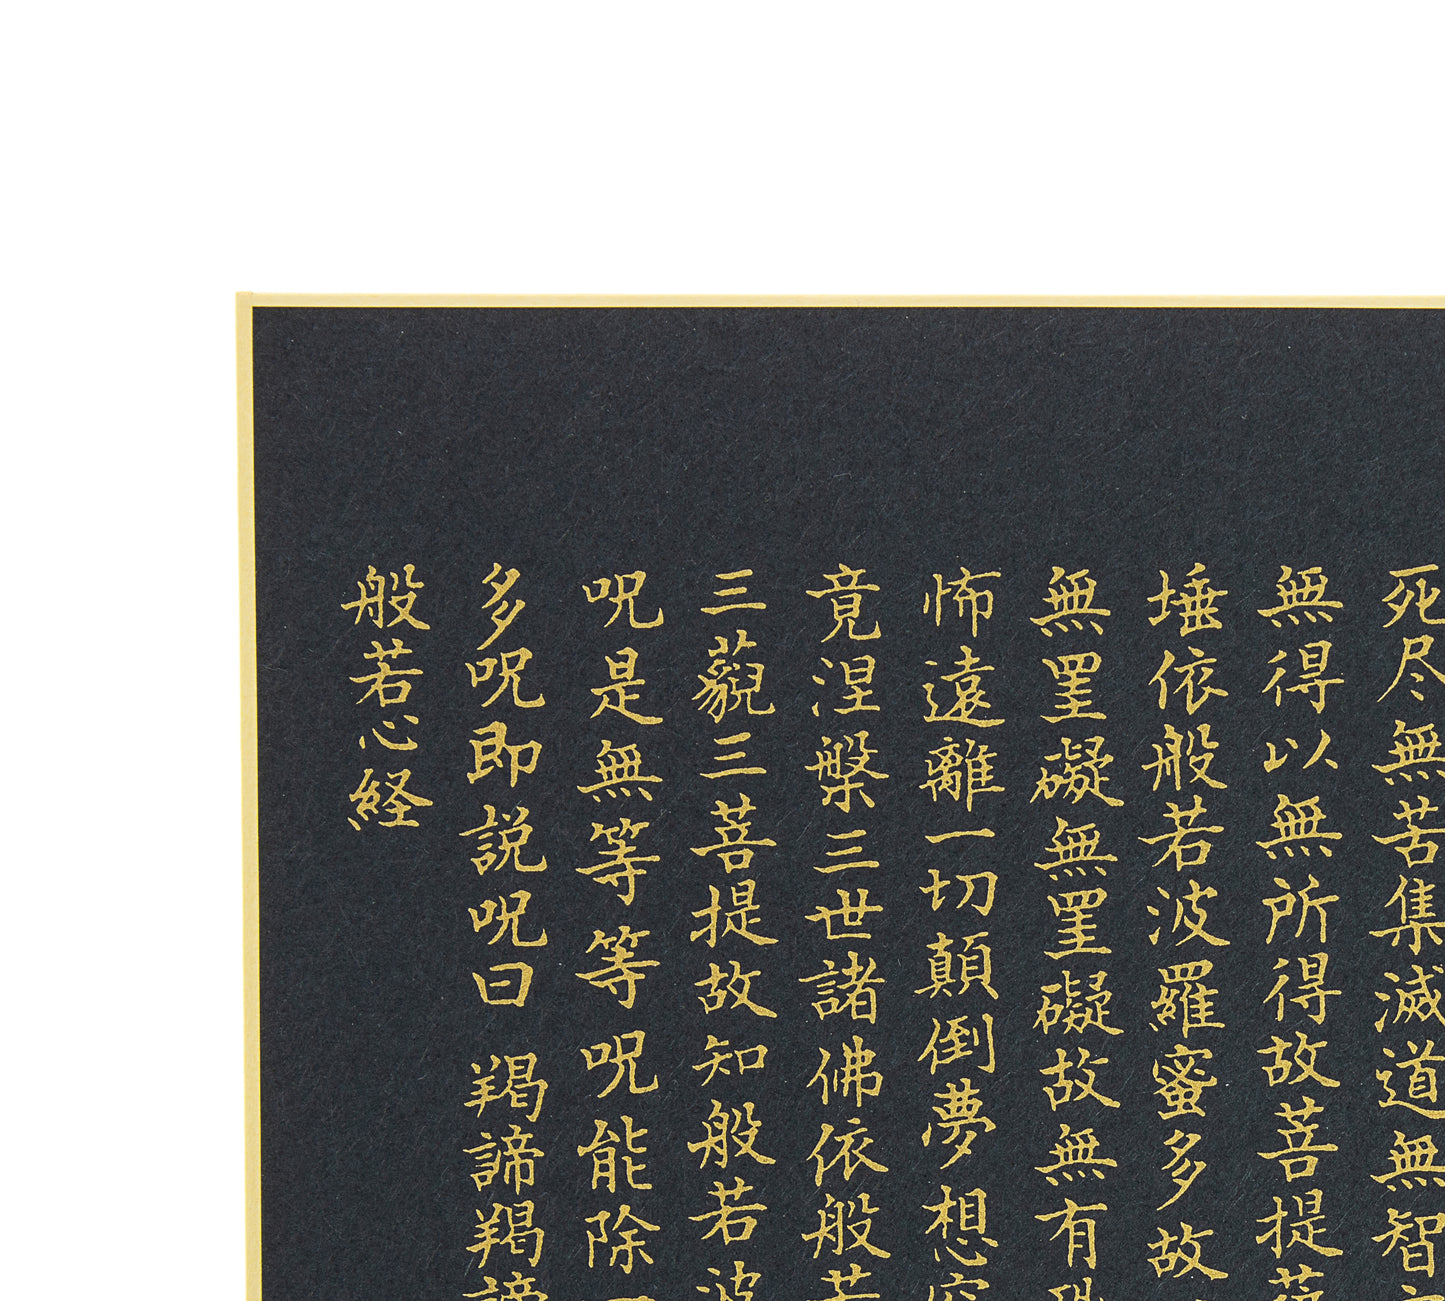 死尽無苦集滅道無智
無得以無所得故菩提
埵依般若波羅蜜多故
無罣礙無罣礙故無有
怖遠離一切顛倒夢想
竟涅槃三世諸佛依般若
三藐三菩提故知般若波
呪是無等等呪能除一
多呪即説呪曰 羯諦羯諦
般若心経